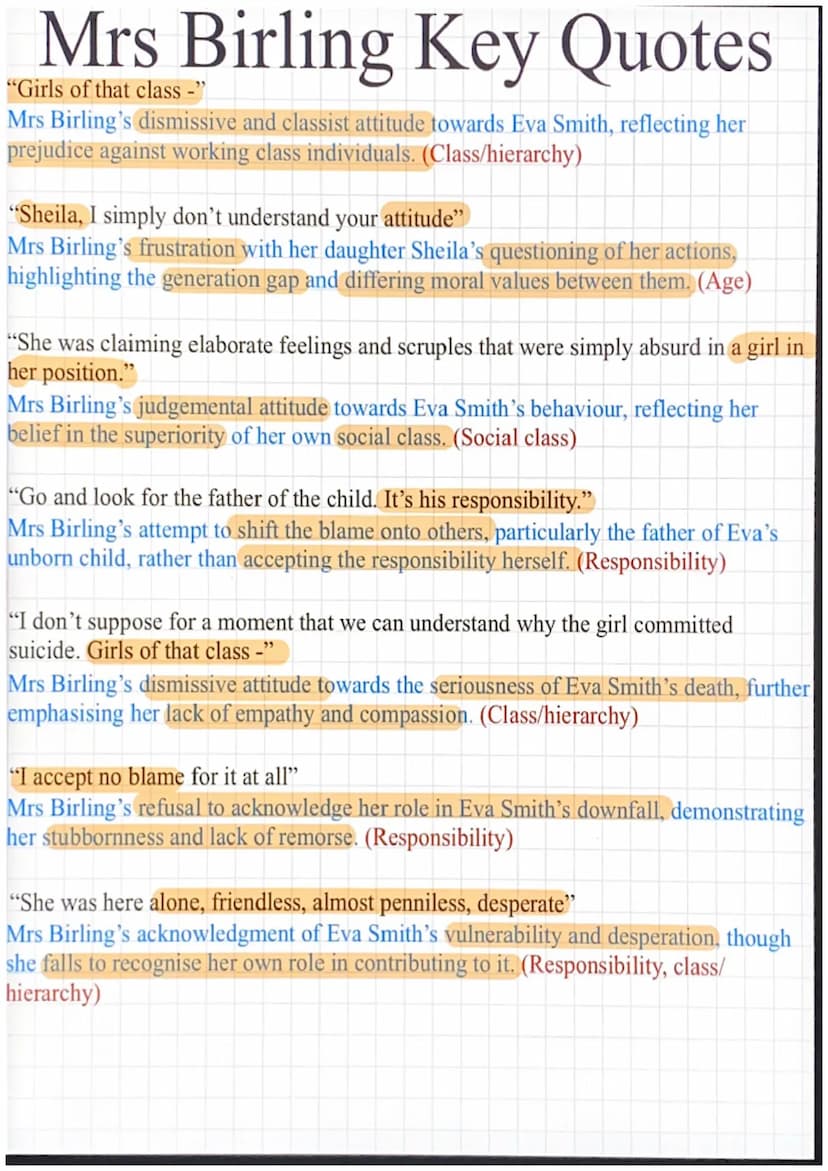 Mrs Birling Key Quotes
“Girls of that class -”
Mrs Birling’s dismissive and classist attitude towards Eva Smith, reflecting her
prejudice against working class individuals. (Class/hierarchy)
“Sheila, I simply don’t understand your attitude”
Mrs Birling’s frustration with her daughter Sheila’s questioning of her actions,
highlighting the generation gap and differing moral values between them. (Age)
“She was claiming elaborate feelings and scruples that were simply absurd in a girl in
her position.”
Mrs Birling’s judgemental attitude towards Eva Smith’s behaviour, reflecting her
belief in the superiority of her own social class. (Social class)
“Go and look for the father of the child. It’s his responsibility.”
Mrs Birling’s attempt to shift the blame onto others, particularly the father of Eva’s
unborn child, rather than accepting the responsibility herself. (Responsibility)
“I don’t suppose for a moment that we can understand why the girl committed
suicide. Girls of that class -”
Mrs Birling’s dismissive attitude towards the seriousness of Eva Smith’s death, further
emphasising her lack of empathy and compassion. (Class/hierarchy)
“I accept no blame for it at all”
Mrs Birling’s refusal to acknowledge her role in Eva Smith’s downfall, demonstrating
her stubbornness and lack of remorse. (Responsibility)
“She was here alone, friendless, almost penniless, desperate”
Mrs Birling’s acknowledgment of Eva Smith’s vulnerability and desperation, though
she falls to recognise her own role in contributing to it. (Responsibility, class/
hierarchy)